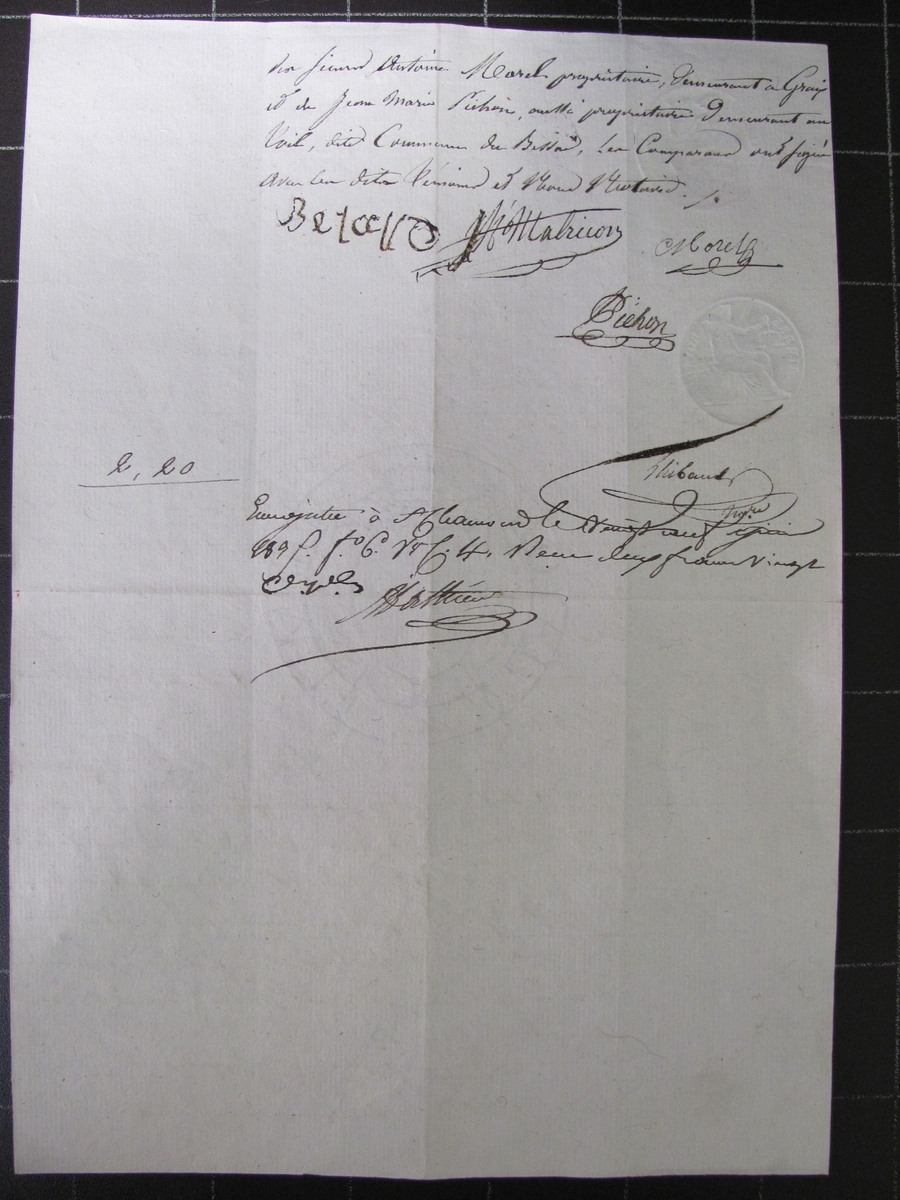 des sieurs Antoine Morel propriétaire, demeurant a Graix
et de Jean Marie Pichon, aussi propriétaire demeurant au
dite Commune du Bessat, les Comparans ont signé
avec les dits témoins et Nous Notaire ./.
Matricon
Morel
Pichon
2, 20
Thibaud
Nre
Enregistré à St Chamond le Vingt neuf
f.o 6. Vo C. 4. Recu deux francs vingt
Mathieu